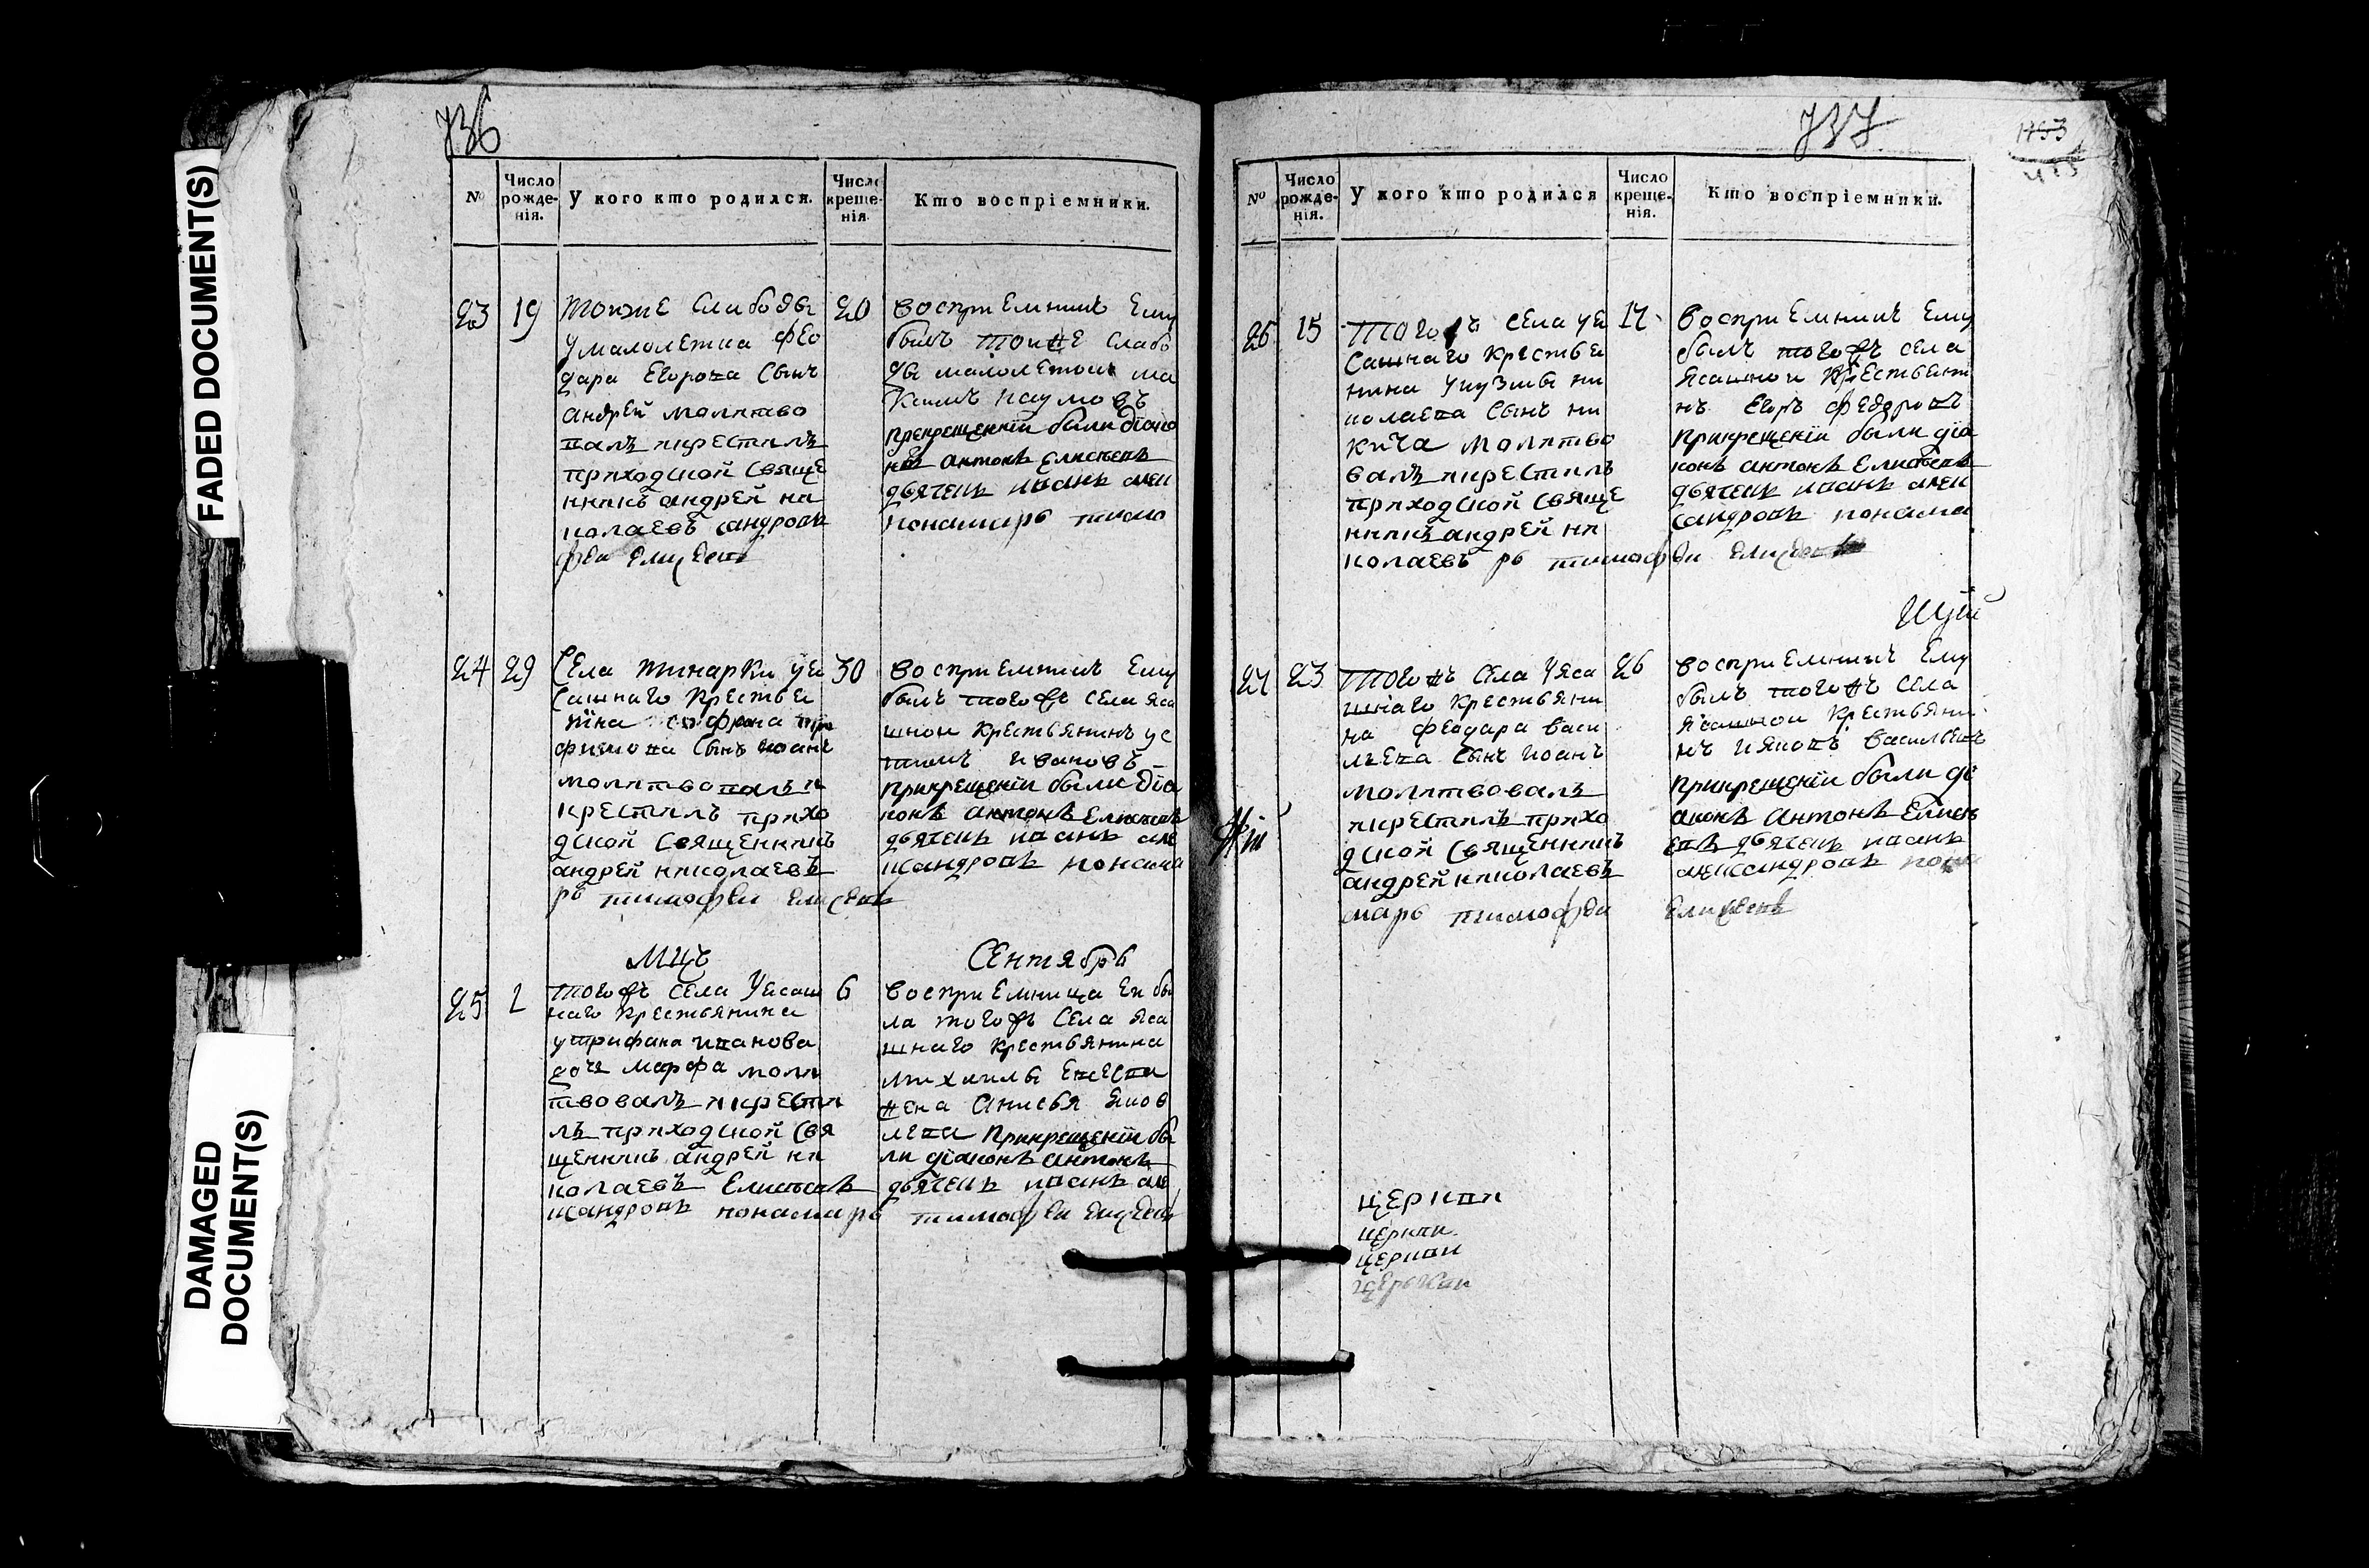 FADED DOCUMENT(S)
DAMAGED DOCUMENT(S)
736
№
Число рожде-нія.
У кого кто родился.
Число креще-нія.
Кто воспріемники.
23
19
тойже слободы
умалолетка фео
дара Егорова сынъ
андрей молитво
валъ икрестилъ
приходской свяще
нникъ андрей ни
колаевъ
20
воспри Емникъ Ему
былъ тойже слобо
ды малолетокъ ма
ксимъ наумовъ
прикрещеніи были діако
нъ антонъ
дьячекъ иванъ алек
сандровъ
понамарь тимо
фей
24
29
Села тинарки уея
сашнаго крестья
нина
сынъ иоанъ
молитвовалъ и
крестилъ прихо
дской священникъ
андрей николаевъ
30
воспри Емникъ Ему
былъ тогожъ села яса
шной крестьянинъ ус
тинъ ивановъ
прикрещеніи были діа
конъ антонъ
дьячекъ иванъ але
ксандровъ понама
рь тимофей
Мцъ Сентябрь
25
1
тогожъ села уясаш
наго крестьянина
утрифана иванова
дочь марфа моли
твовалъ икрести
лъ приходской свя
щенникъ андрей ни
колаевъ
6
воспри Емница Еи бы
ла тогожъ села яса
шнаго крестьянина
михаилы
жена анисья яков
лева прикрещеніи бы
ли діаконъ антонъ
дьячекъ иванъ але
ксандровъ понамарь тимофей
737
№
Число рожде-нія.
У кого кто родился
Число креще-нія.
Кто воспріемники.
26
15
тогожъ села уя
сашнаго крестья
нина укузмы ни
колаева сынъ ни
кита молитво
валъ икрестилъ
приходской свяще
нникъ андрей ни
колаевъ
17
воспри Емникъ Ему
былъ тогожъ села
ясашной крестьяни
нъ Егоръ федоровъ
прикрещеніи были діа
конъ антонъ
дьячекъ иванъ алек
сандровъ понама
рь тимофей
27
23
тогожъ села уяса
шнаго крестьяни
на феодара васи
льева сынъ иоанъ
молитвовалъ
икрестилъ прихо
дской священникъ
андрей николаевъ
26
воспри Емникъ Ему
былъ тогожъ села
ясашной крестьяни
нъ ияковъ васильевъ
прикрещеніи были ді
аконъ антонъ
дьячекъ иванъ
александровъ пона
марь тимофей
церкви
церкви
церкви
церкви